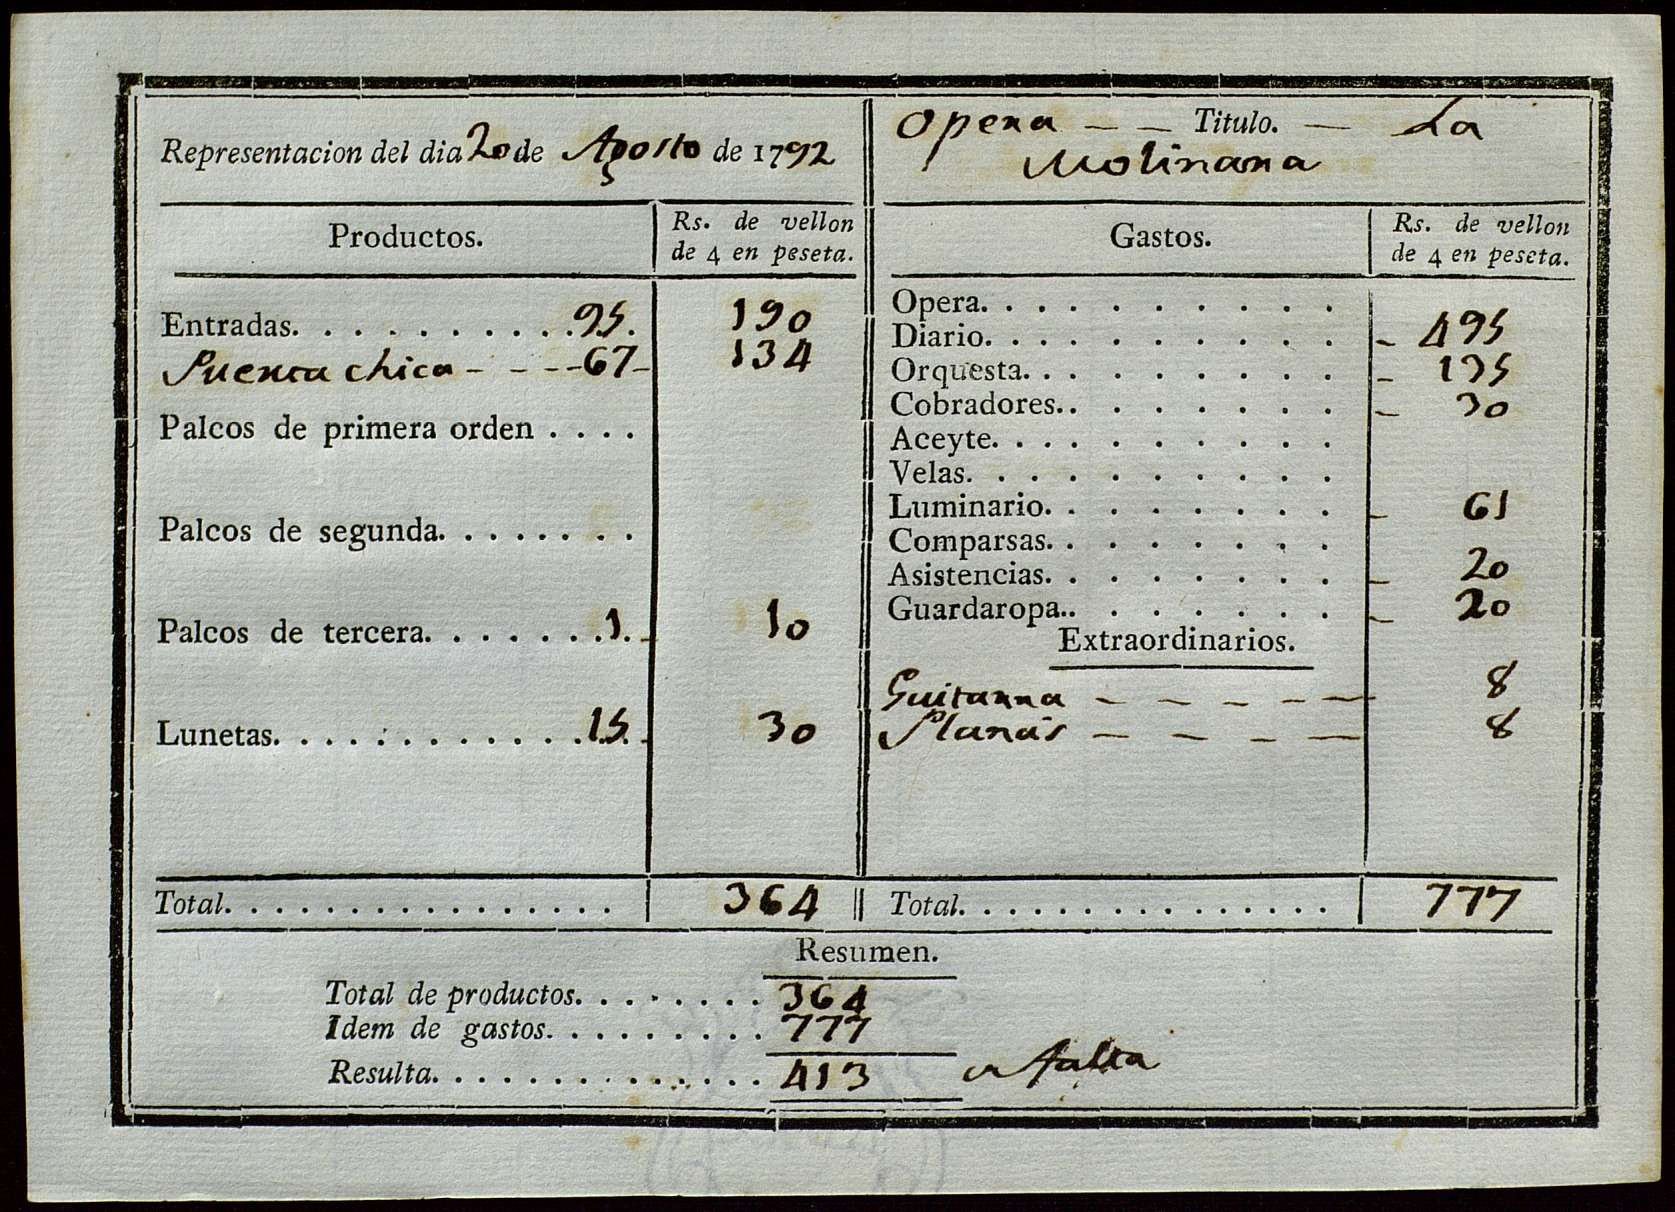 Representacion del dia 20 de Agosto de 1792
Opera — — Titulo. — La
Molinara
Productos.
Rs. de vellon
de 4 en peseta.
Gastos.
Rs. de vellon
de 4 en peseta.
Entradas. . . . . . . . . . . 95. 190
Puerta chica - - - - 67 - 134
Palcos de primera orden . . . .
Palcos de segunda. . . . . . . .
Palcos de tercera. . . . . . . 1. - 10
Lunetas. . . . . . . . . . . . . 15. - 30
Total. . . . . . . . . . . . . . . . 364
Opera. . . . . . . . . .
Diario. . . . . . . . . . - 495
Orquesta. . . . . . . . . - 135
Cobradores. . . . . . . . - 30
Aceyte. . . . . . . . . .
Velas. . . . . . . . . .
Luminario. . . . . . . . - 61
Comparsas. . . . . . . .
Asistencias. . . . . . . . - 20
Guardaropa.. . . . . . . - 20
Extraordinarios.
Guitarra — — — — — — 8
Planas — — — — 8
Total. . . . . . . . . . . . . . . 777
Resumen.
Total de productos. . . . . . . . 364
Idem de gastos. . . . . . . . . . 777
Resulta. . . . . . . . . . . . . . 413 falta